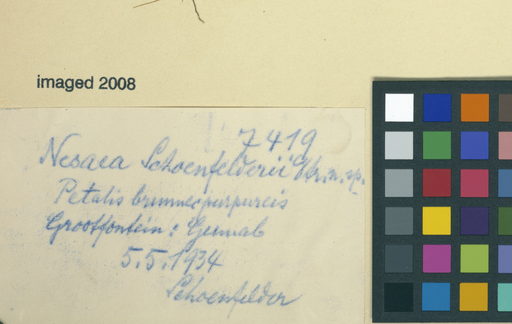 imaged 2008
7419
Nesaea Schoenfelderii
Petalis brunneipurpureis
Grootfontein: Geimab
5.5.1934
Schoenfelder